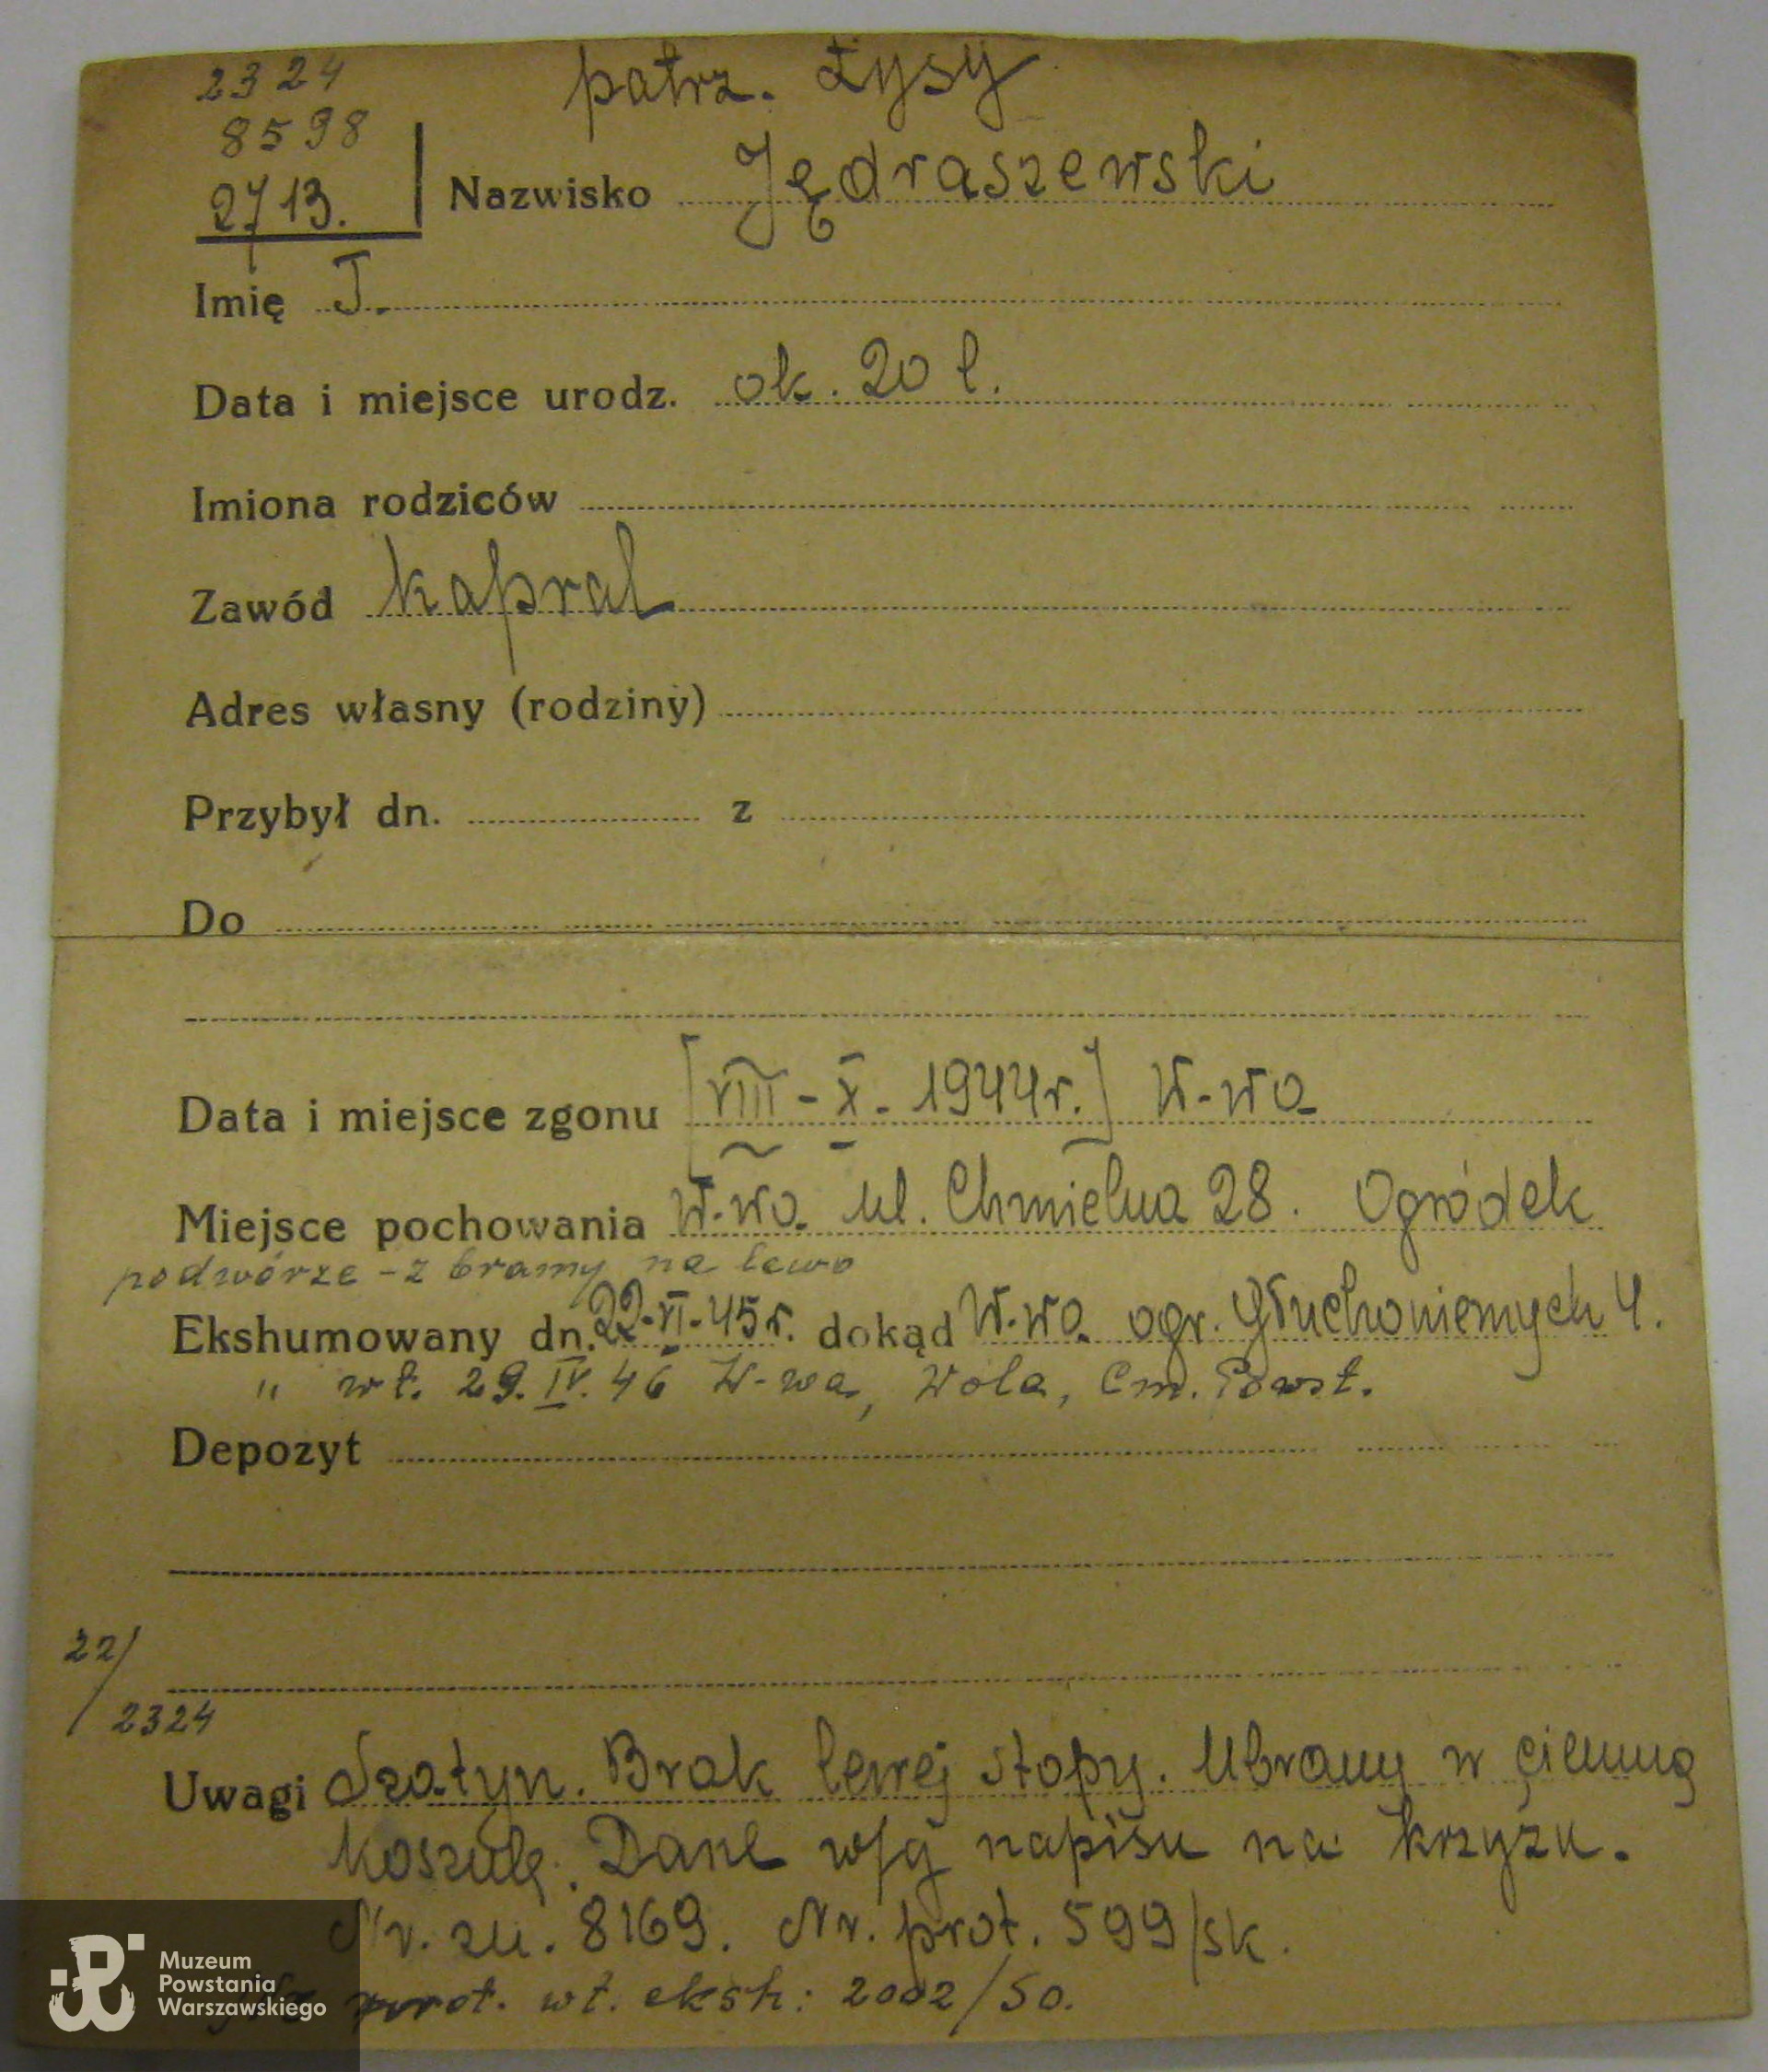 2324
patrz. Łysy
8598
2713.
Nazwisko Jędraszewski
Imię J.
Data i miejsce urodz. ok. 20 l.
Imiona rodziców
Zawód kapral
Adres własny (rodziny)
Przybył dn. z
Do
Data i miejsce zgonu [VIII - X. 1944 r.] W-wa
Miejsce pochowania W-wa ul. Chmielna 28. Ogródek
podwórze - z bramy na lewo
Ekshumowany dn. 22-VI-45 r. dokąd W-wa ogr. Głuchoniemych 4.
" wt. 29. IV. 46 W-wa, Wola, Cm. Powst.
Depozyt
22/
2324
Uwagi Szatyn. Brak lewej stopy. Ubrany w ciemną
koszulę. Dane w/g napisu na krzyżu.
Nr. zn. 8169. Nr. prot. 599/sk.
prot. wt. eksh: 2002/50.
Muzeum
Powstania
Warszawskiego